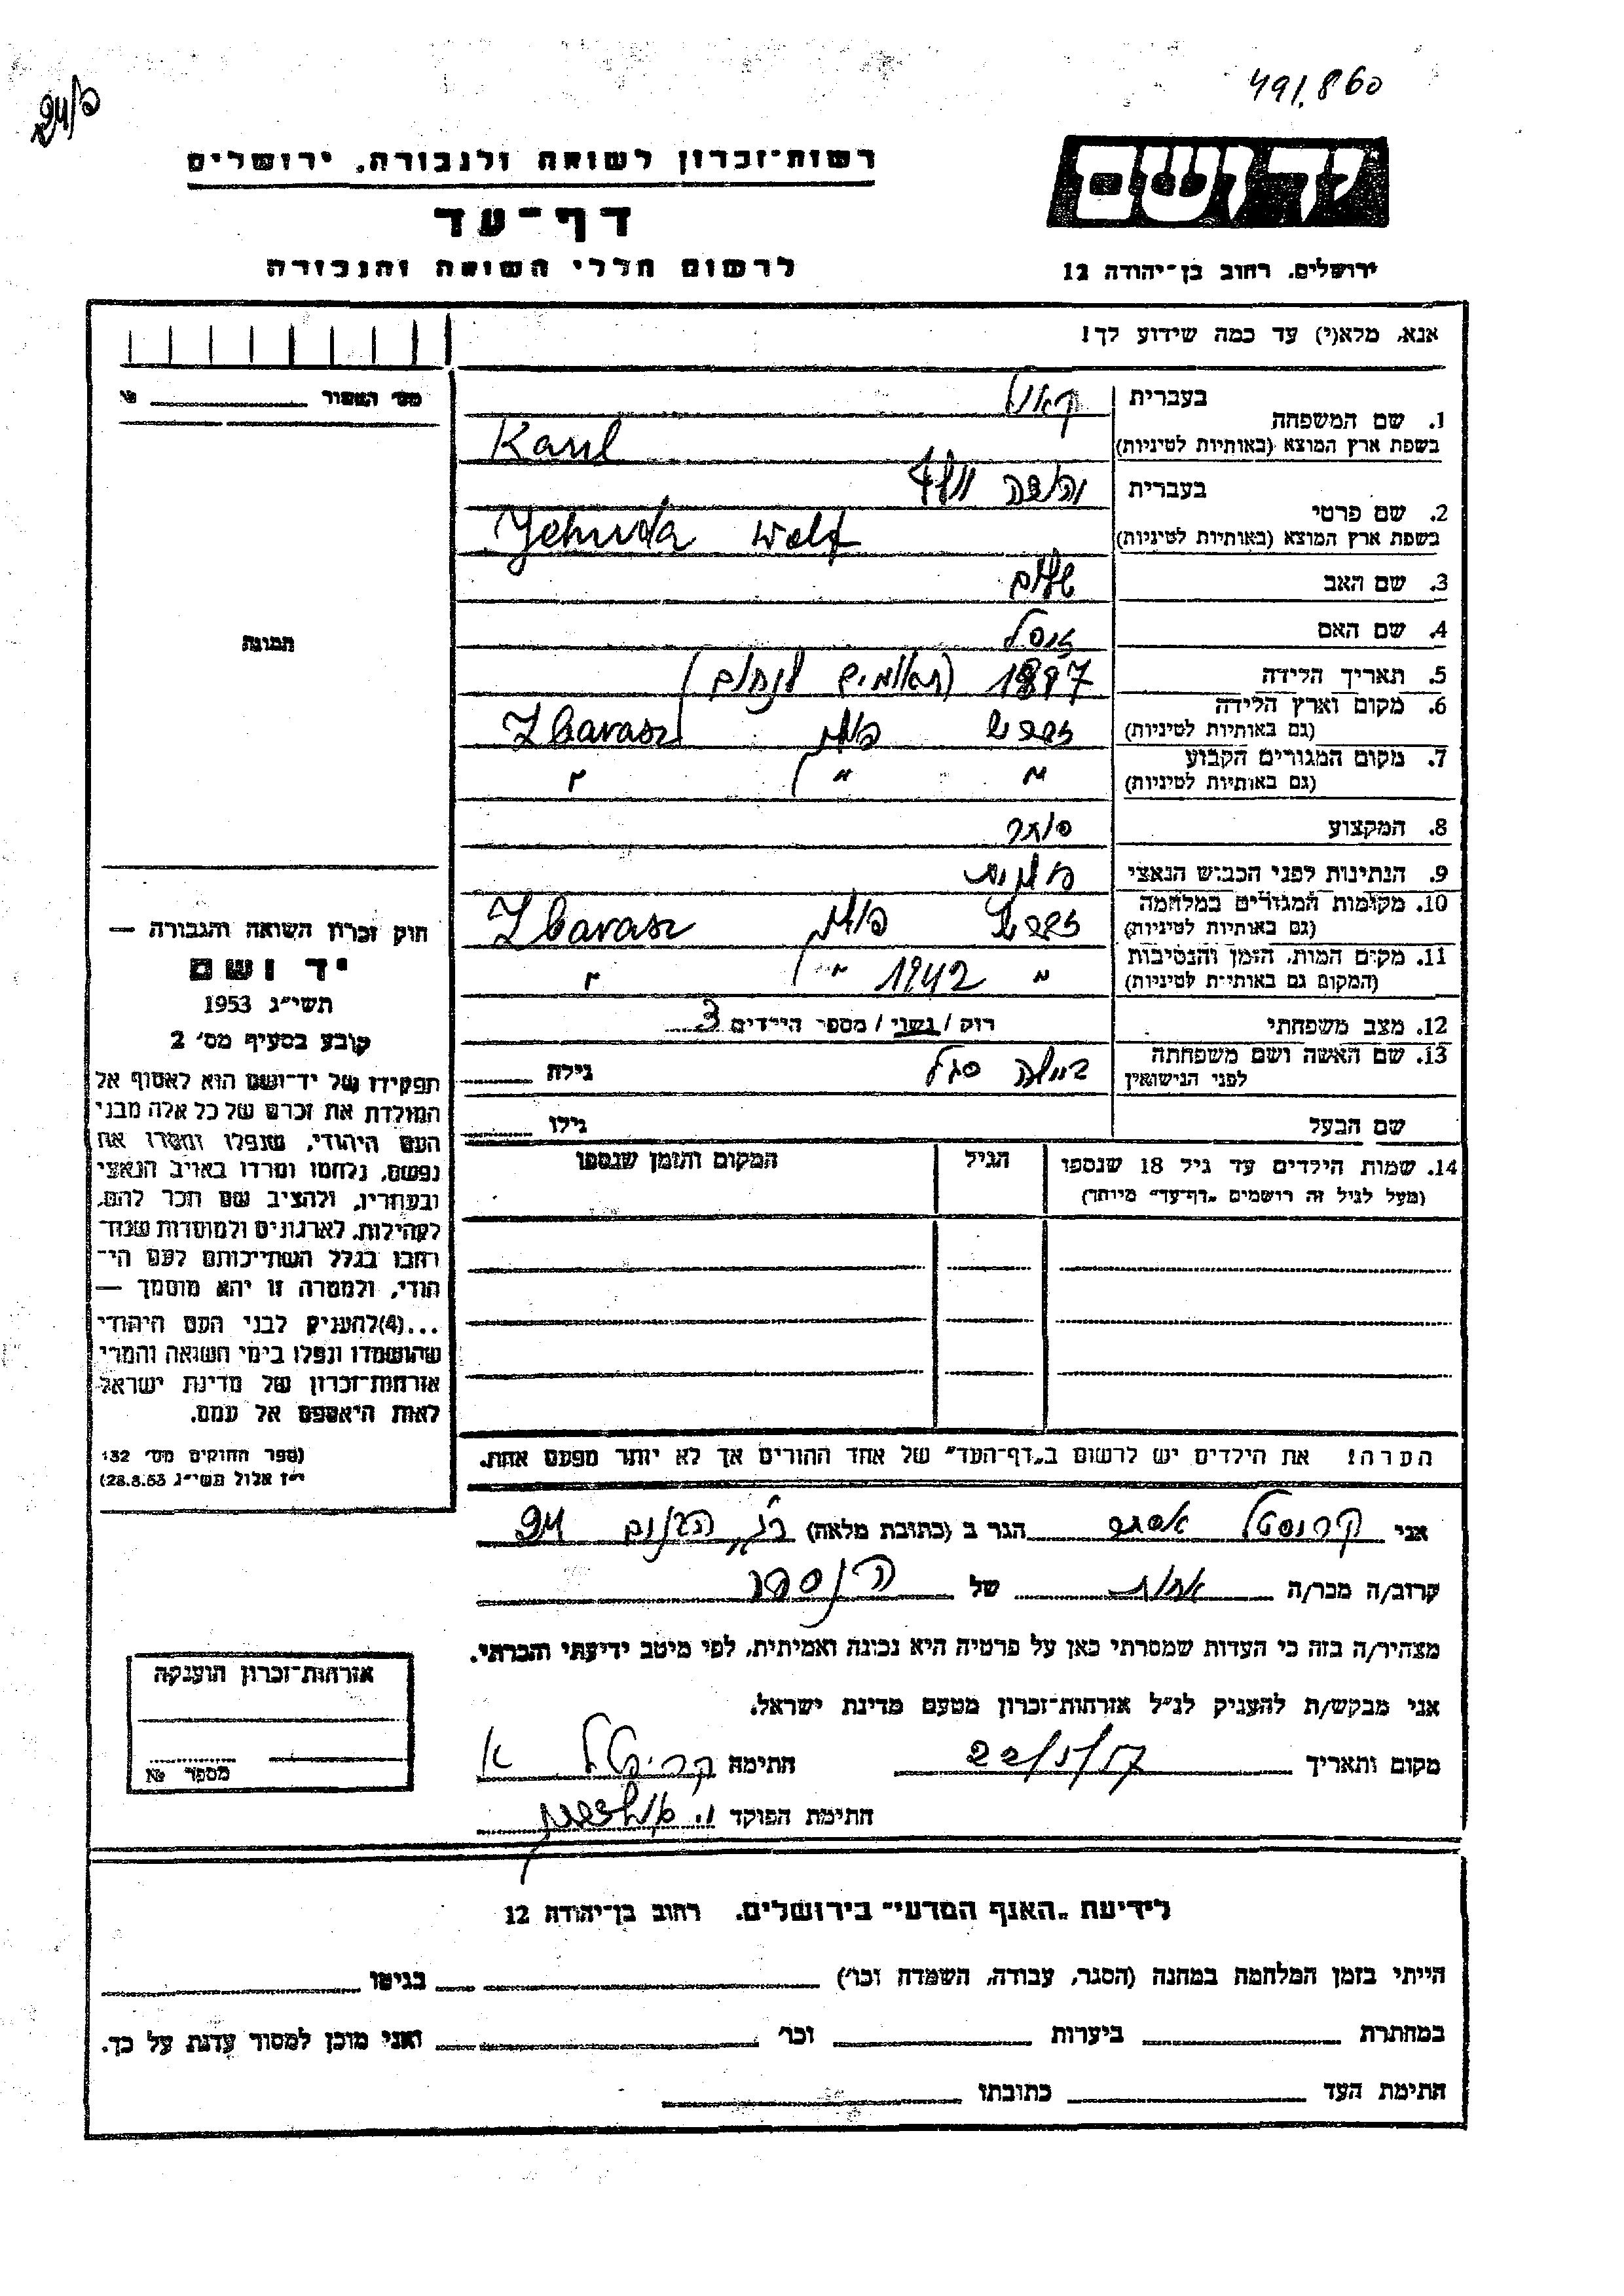 491.860
24/פ
יד ושם
רשות־זכרון לשואה ולגבורה, ירושלים
דף־עד
לרשום חללי השואה והגבורה
ירושלים, רחוב בן־יהודה 12
אנא, מלא(י) עד כמה שידוע לך!
מס׳ השאור № 
1. שם המשפחה
בעברית
בשפת ארץ המוצא (באותיות לטיניות) Karul
2. שם פרטי
בעברית יהודה וולף
בשפת ארץ המוצא (באותיות לטיניות) Yehuda Wolf
3. שם האב שלום
4. שם האם
5. תאריך הלידה 1897
6. מקום וארץ הלידה
(גם באותיות לטיניות) זברז׳ פולין Zbarasz
7. מקום המגורים הקבוע
(גם באותיות לטיניות) " " "
8. המקצוע סוחר
9. הנתינות לפני הכבוש הנאצי פולנית
10. מקומות המגורים במלחמה
(גם באותיות לטיניות) זברז׳ פולין Zbarasz
11. מקום המות, הזמן והנסיבות
(המקום גם באותיות לטיניות) " 1942 " "
12. מצב משפחתי רווק / נשוי / מספר הילדים 3
13. שם האשה ושם משפחתה
לפני הנישואין סגל גילה
שם הבעל גילו
14. שמות הילדים עד גיל 18 שנספו
(מעל לגיל זה רושמים „דף־עד” מיוחד)
הגיל
המקום והזמן שנספו
הערה! את הילדים יש לרשום ב„דף־העד” של אחד ההורים אך לא יותר מפעם אחת.
תמונה
חוק זכרון השואה והגבורה —
יד ושם
תשי״ג 1953
קובע בסעיף מס׳ 2
תפקידו של יד־ושם הוא לאסוף אל
המולדת את זכרם של כל אלה מבני
העם היהודי, שנפלו ומסרו את
נפשם, נלחמו ומרדו באויב הנאצי
ובעוזריו, ולהציב שם וזכר להם,
לקהילות, לארגונים ולמוסדות שנח־
רבו בגלל השתייכותם לעם הי־
הודי, ולמטרה זו יהא מוסמך —
...(4)להעניק לבני העם היהודי
שהושמדו ונפלו בימי השואה והמרי
אזרחות־זכרון של מדינת ישראל
לאות היאספם אל עמם.
(ספר החוקים מס׳ 132
י״ז אלול תשי״ג 28.8.53)
אני קרנסטל אסתר הגר ב (כתובת מלאה)
קרוב/ה מכר/ה אחות של הנספה
מצהיר/ה בזה כי העדות שמסרתי כאן על פרטיה היא נכונה ואמיתית, לפי מיטב ידיעתי והכרתי.
אני מבקש/ת להעניק לנ״ל אזרחות־זכרון מטעם מדינת ישראל.
מקום ותאריך 22/5/57 חתימה
חתימת הפוקד
אזרחות־זכרון הוענקה
מספר №
לידיעת „האגף המדעי” בירושלים, רחוב בן־יהודה 12
הייתי בזמן המלחמה במחנה (הסגר, עבודה, השמדה וכו׳) בגיטו
במחתרת ביערות וכו׳ ואני מוכן למסור עדות על כך.
חתימת העד כתובתו